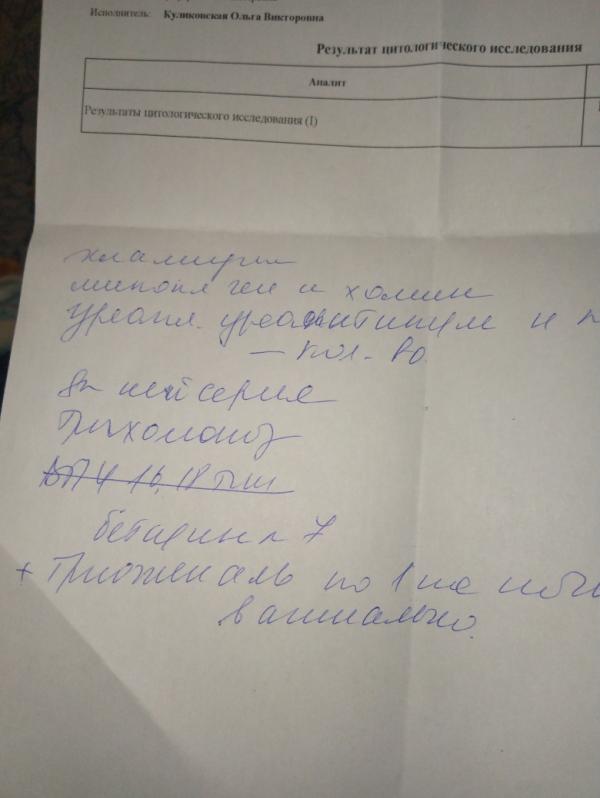 Исполнитель: Куликовская Ольга Викторовна
Результат цитологического исследования
Аналит
Результаты цитологического исследования (I)
хламидии
микопл ген и хомин
уреапл. уреалитикум и п
— кол-во
нейсерия
Трихомониаз
ВПЧ 16, 18 тип
бетадин n 7
+ Триожиналь по 1 на ночь
вагинально.